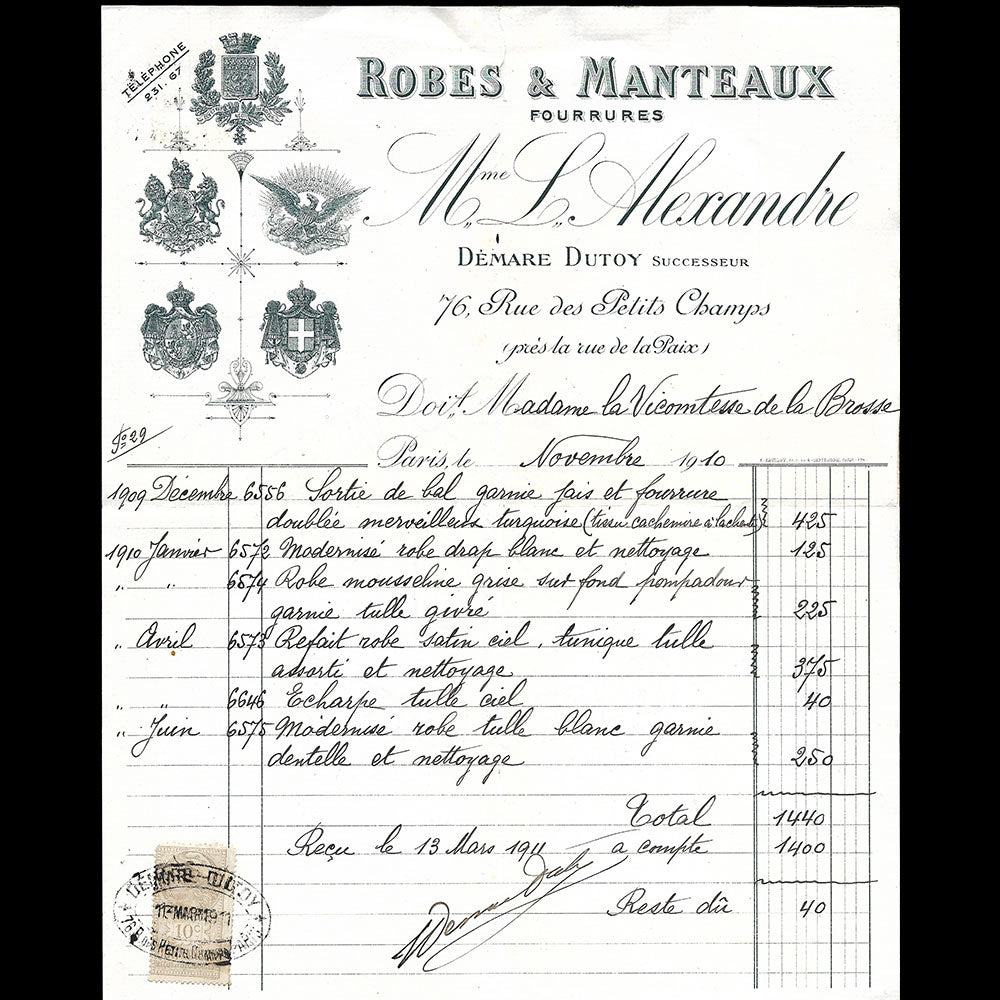 TÉLÉPHONE
231.67
ROBES & MANTEAUX
FOURRURES
Mme L. Alexandre
DÉMARE DUTOY SUCCESSEUR
76, Rue des Petits Champs
(près la rue de la Paix)
Doit Madame la Vicomtesse de la Brosse
Fo 29
Paris, le Novembre 1910
1909 Décembre 6556 Sortie de bal garnie jais et fourrure
doublée merveilleux turquoise (tissu cachemire à la cliente) 425
1910 Janvier 6572 Modernisé robe drap blanc et nettoyage 125
" " 6574 Robe mousseline grise sur fond pompadour
garnie tulle givré 225
" Avril 6573 Refait robe satin ciel, tunique tulle
assorti et nettoyage 375
" " 6646 Echarpe tulle ciel 40
" Juin 6575 Modernisé robe tulle blanc garnie
dentelle et nettoyage 250
Total 1440
Reçu le 13 Mars 1911 a compte 1400
Reste dû 40
DÉMARE-DUTOY
MARS 1911
10c
76 R. des Petits Champs PARIS